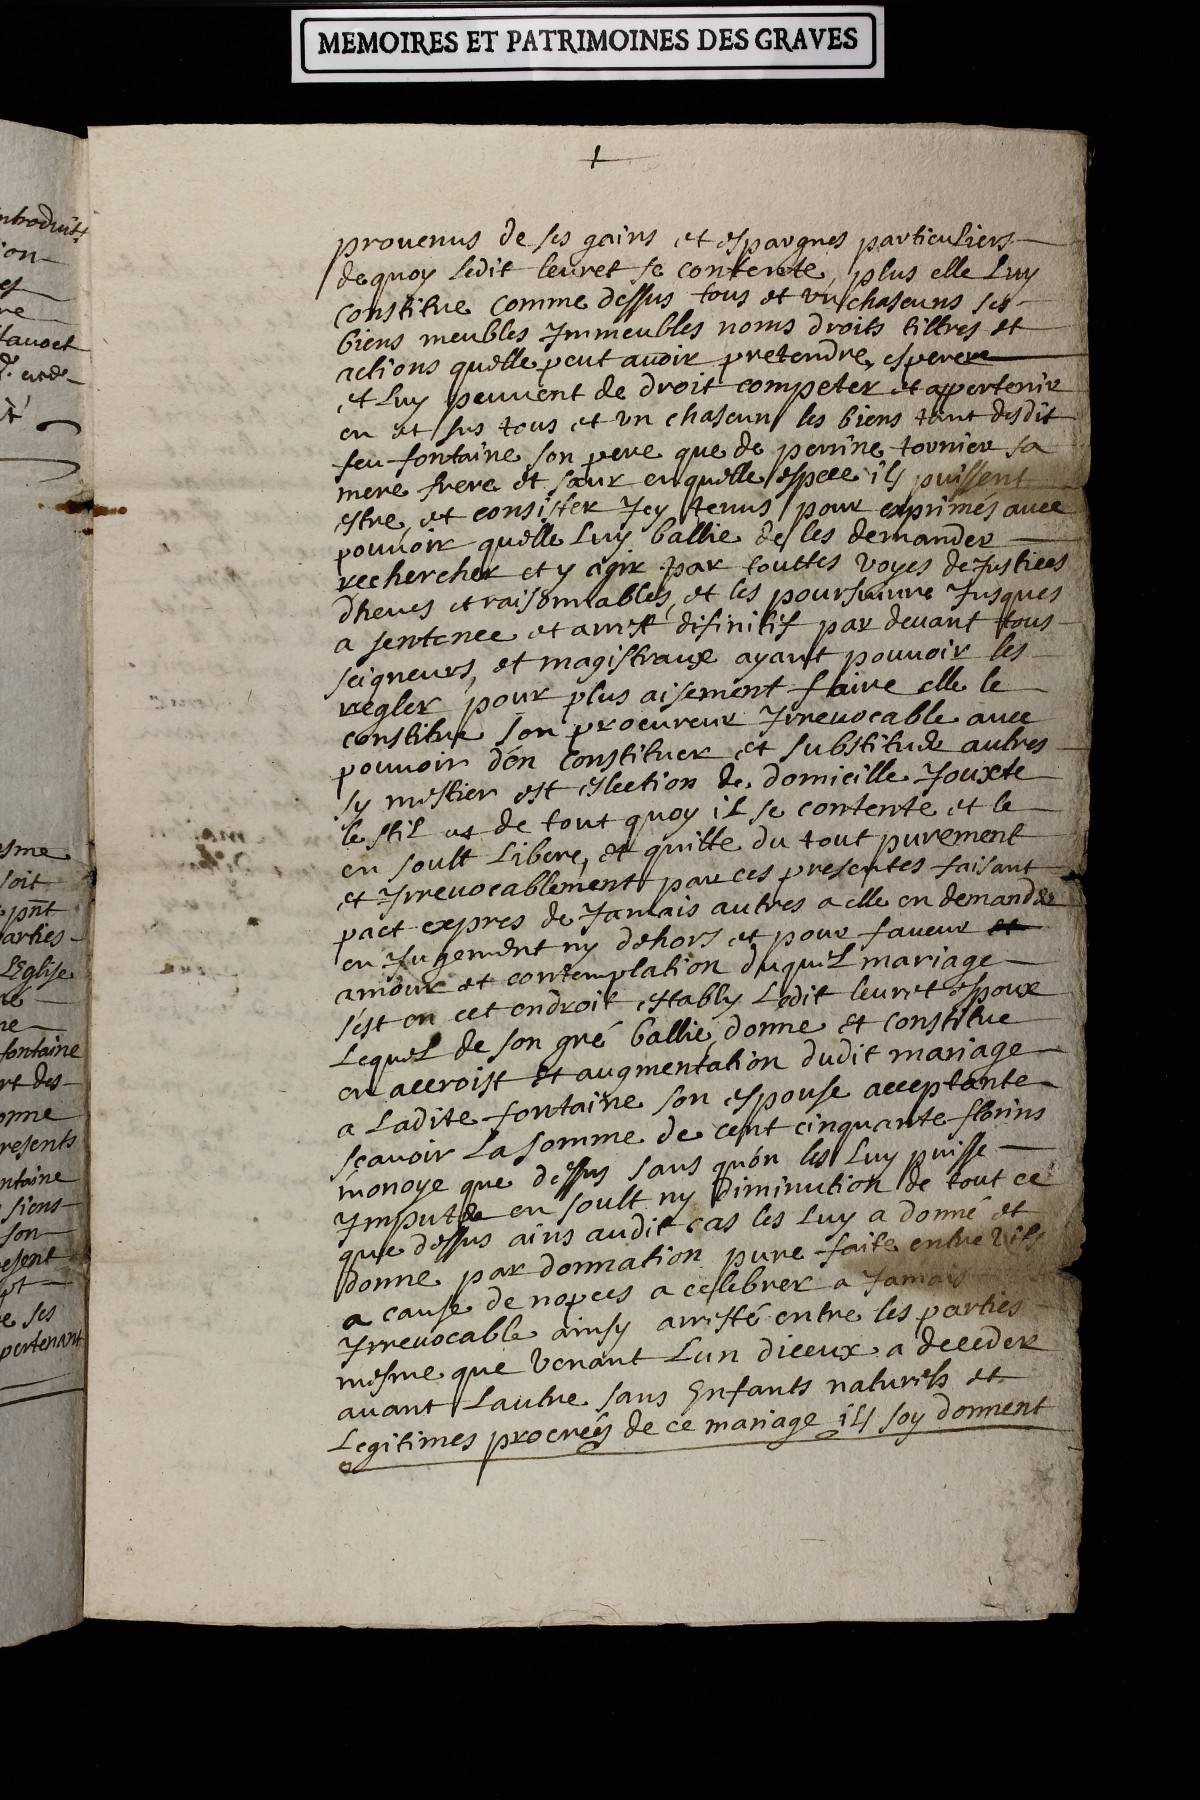 MEMOIRES ET PATRIMOINES DES GRAVES
ntroduit
ion
es
re
sauoet
esme
soit
pnt
arties
LEglise
re
ne
fontaine
rt des
onne
resents
ntaine
siens
son
esent
et
e ses
pertenant
prouenus de ses gains et espargnes particuliers
dequoy Ledit leuret se contente, plus elle Luy
constitue comme dessus tous et vn chascuns ses
biens meubles Jmmeubles noms droits tiltres et
actions quelle peut auoir pretendre, esperer
et Luy peuuent de droit competer et appertenir
en et sus tous et vn chascun les biens tant desdit
feu fontaine son pere que de perrine tornier sa
mere frere et sœur en quelle espece ils puissent
estre, et consister Jcy tenus pour exprimés auec
pouuoir quelle Luy ballie de les demander
rechercher et y agir par touttes voyes de Justices
dheues et raisonnables, et les poursuiure Jusques
a sentence et arrest difinitif par deuant tous
seigneurs, et magistraux ayant pouuoir les
regler, pour plus aisement faire elle le
constitue son procureur Jrreuocable auec
pouuoir dén constituer et substituer autres
sy mestier est eslection de domicille Jouxte
le stil et de tout quoy il se contente et le
en soult Libere, et quitte du tout purement
et Jrreuocablement par ces presentes faisant
pact expres de Jamais autres a elle en demander
en Jugement ny dehors et pour faueur et
amour et contemplation duquel mariage
sést en cet endroit estably Ledit leuret espoux
Lequel de son gré ballie, donne et constitue
en accroist et augmentation dudit mariage
a Ladite fontaine son espouse acceptante
scauoir La somme de cent cinquante florins
monoye que dessus sans quón les Luy puisse
Jmputer en soult ny diminution de tout ce
que dessus ains audit cas les Luy a donné et
donne par donnation pure faite entre vifs
a cause de nopces a celebrer a Jamais
Jrreuocable ainsy arresté entre les parties
mesme que venant Lun diceux a deceder
auant Lautre sans Enfants naturels et
Legitimes procreés de ce mariage ils soy donnent